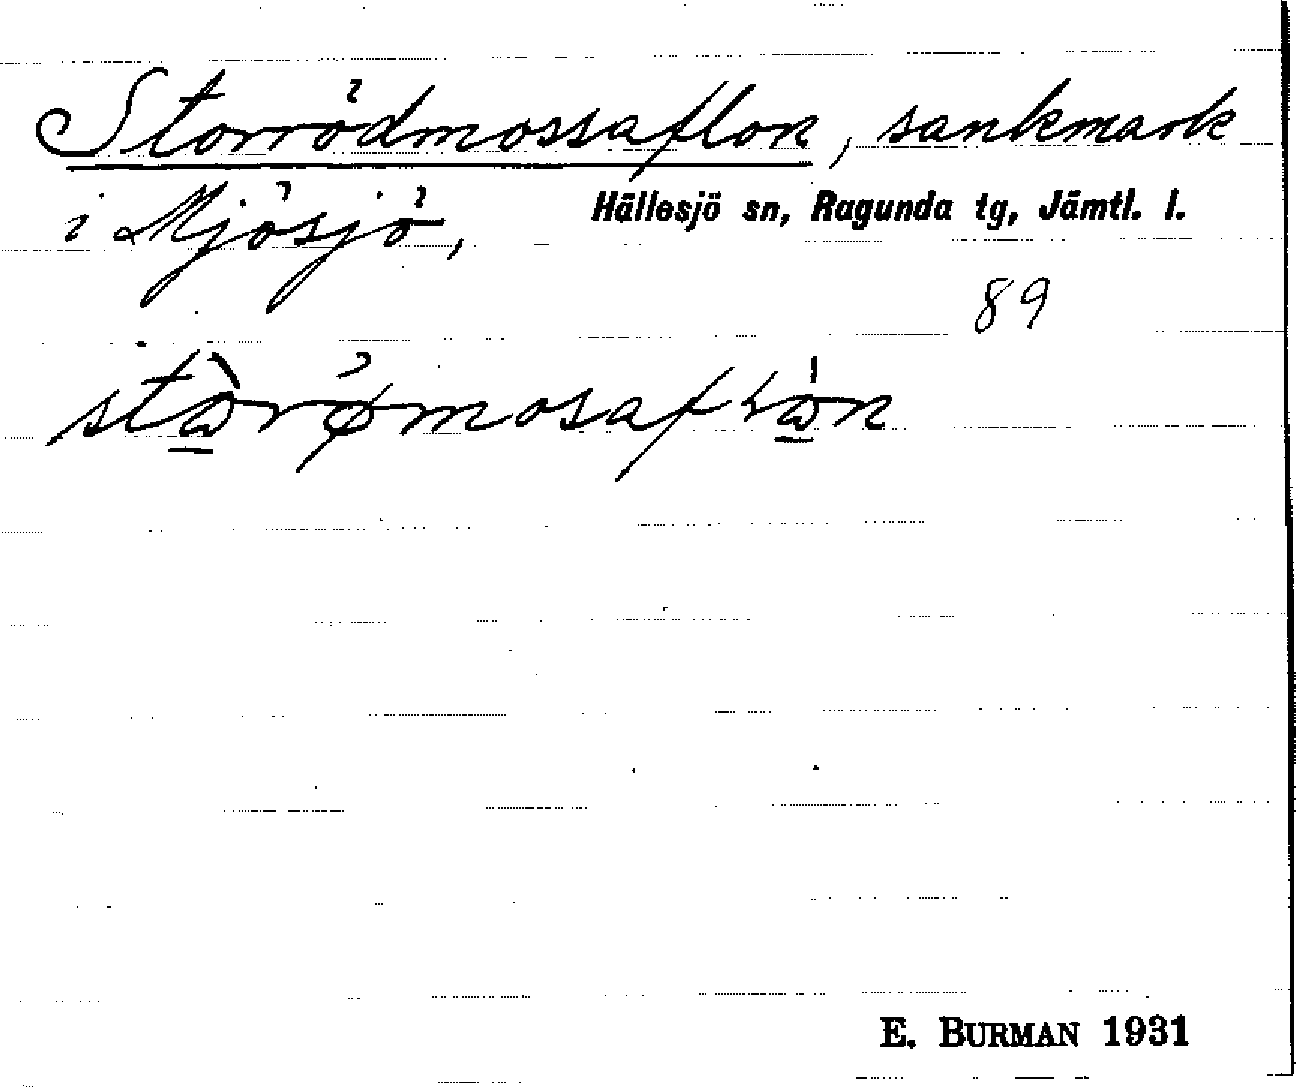 Storrödmossaflon, sankmark
i Mjösjö, Hällesjö sn, Ragunda tg, Jämtl. l.
89
E. BURMAN 1931